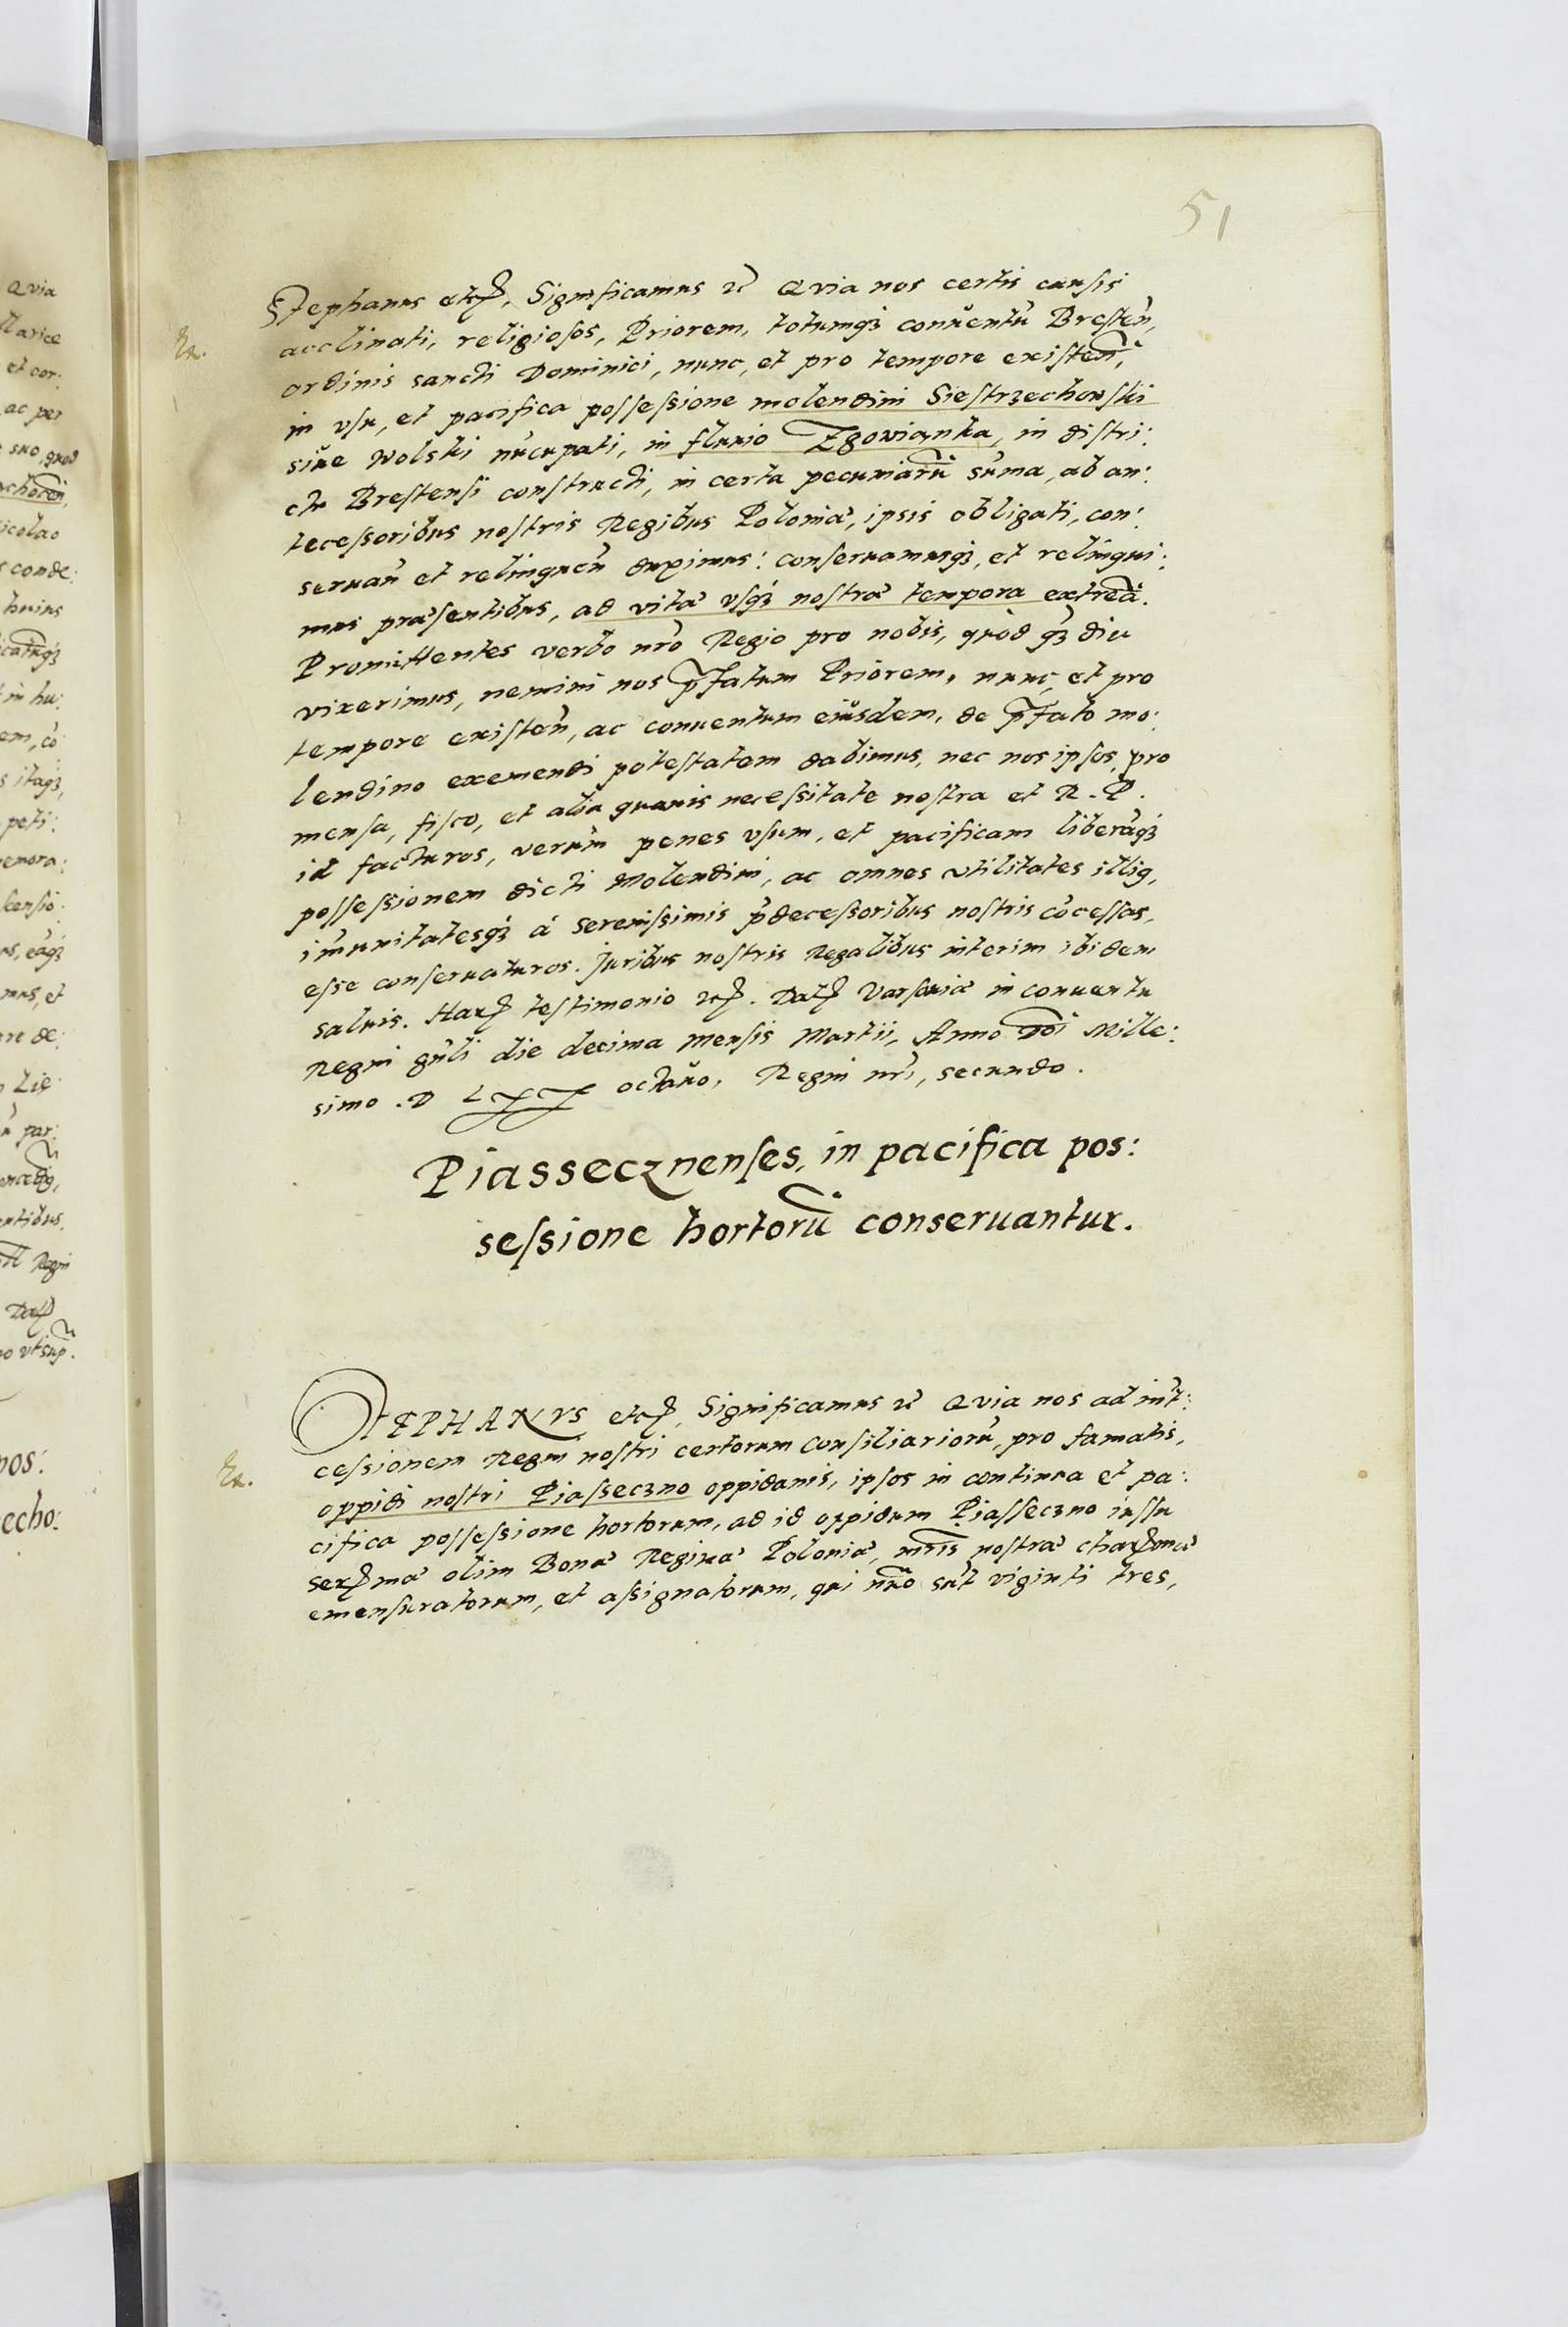 51
Stephanus etc, Significamus etc Quia nos certis causis
acclinati, religiosos, Priorem, totumq3 conuentũ Bresteñ,
ordinis sancti Dominici, nunc, et pro tempore existeñ,
in vsu, et pacifica possessione molendini Siestrzechowski
siue Wolski nũcupati, in fluuio Zgowiantka, in distri:
ctu Brestensi constructi, in certa pecuniarũ sũma, ab an:
tecessoribus nostris Regibus Poloniæ, ipsis obligati, con:
seruañ et relinqueñ duximus: conseruamusq3, et relinqui:
mus præsentibus, ad vitæ vsq3 nostræ tempora extrea.
Promittentes verbo nro Regio pro nobis, quòd q3 diu
vixerimus, nemini nos pfatum Priorem, nunc, et pro
tempore existeñ, ac conuentum eiusdem, de pfato mo:
lendino exemendi potestatem dabimus, nec nos ipsos, pro
mensa, fisco, et alia quauis necessitate nostra et R. P.
id facturos, verum penes vsum, et pacificam liberãq3
possessionem dicti Molendini, ac omnes vtilitates illig,
imunitatesq3 à serenissimis pdecessoribus nostris cõcessas,
esse conseruaturos. Juribus nostris Regalibus interim ibidem
saluis. Haru testimonio etc. Dat Varsauiæ in conuentu
Regni gnli die decima mensis Martii, Anno Doi Mille:
simo . D LXX octauo, Regni nri, secundo.
Piassecznenses, in pacifica pos:
sessione hortorũ conseruantur.
STEPHANVS etc, Significamus etc Quia nos ad int:
cessionem Regni nostri certorum Consiliariorũ, pro famatis,
oppidi nostri Piasseczno oppidanis, ipsos in continua et pa:
cifica possessione hortorum, ad id oppidum Piasseczno iussu
Sermæ olim Bonæ Reginæ Poloniæ, mris nostræ charmæ
emensuratorum, et assignatorum, qui nuo sũt viginti tres,